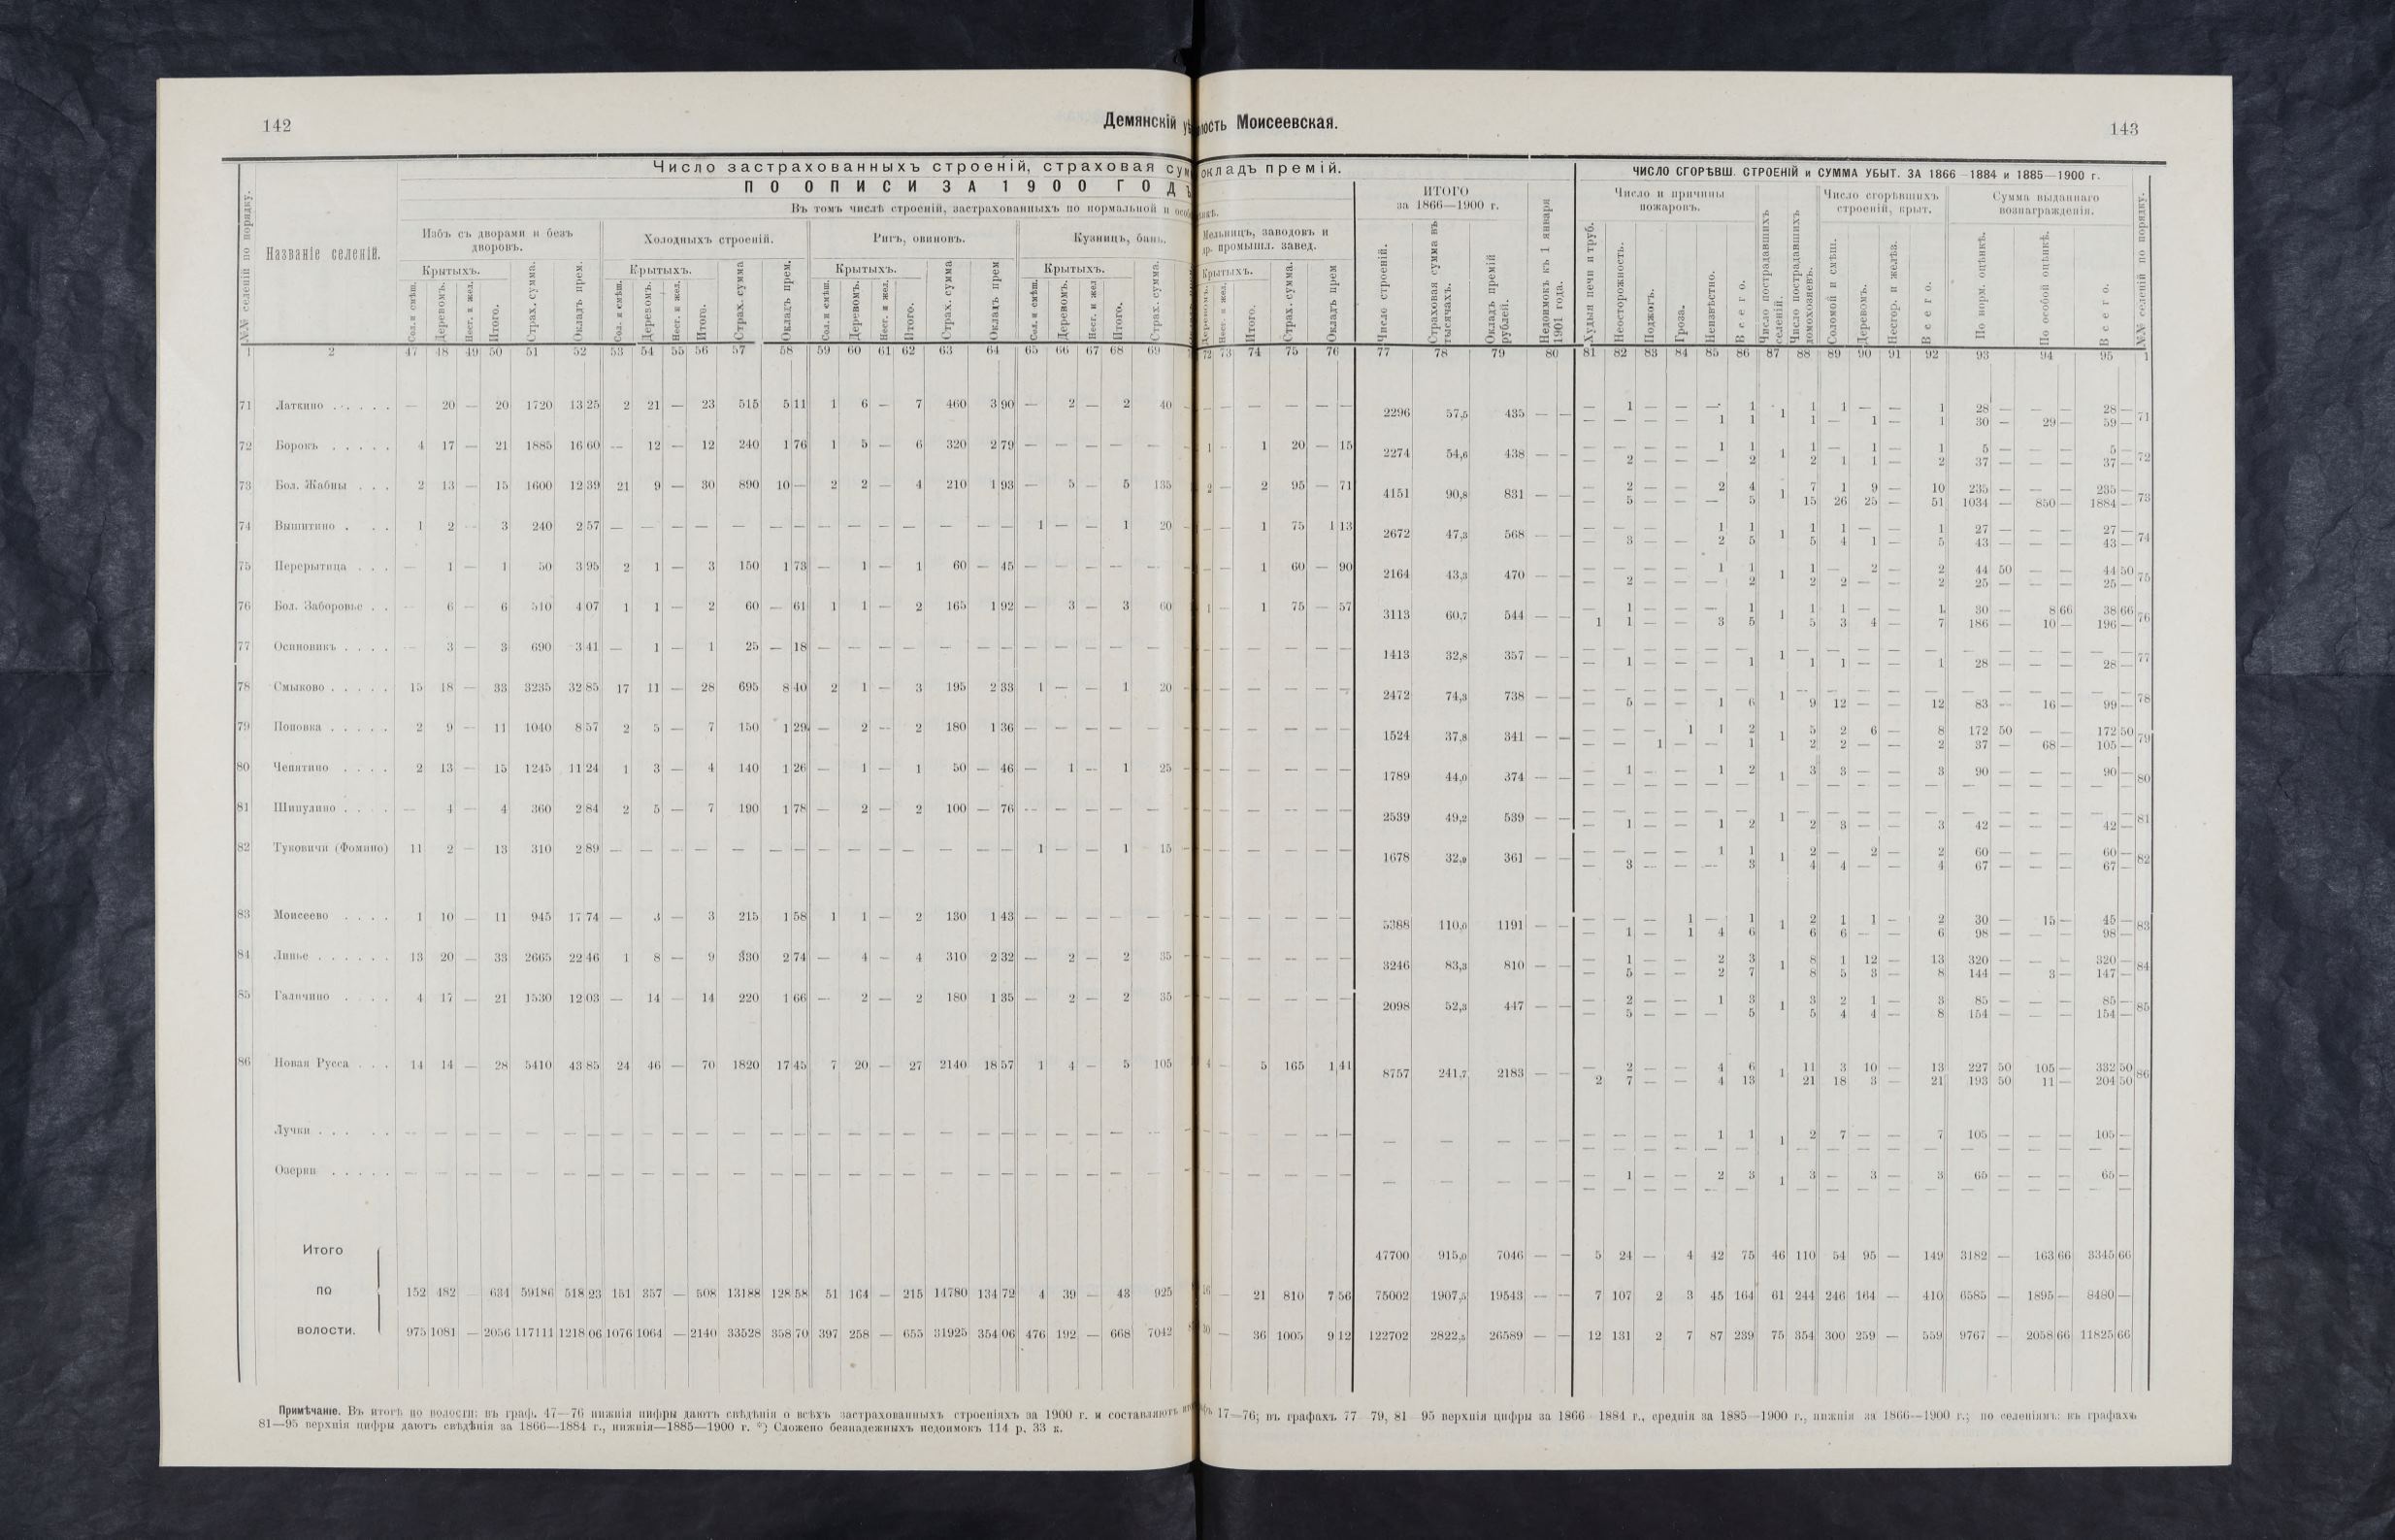 142
Демянскій
лость Моисеевская.
143
Число застрахованныхъ строеній, страховая
окладъ премій.
ПО ОПИСИ ЗА 1900 ГОДЪ
Въ томъ числѣ строеній, застрахованныхъ по нормальной и
№№ селеній по порядку.
Названіе селеній.
Избъ съ дворами и безъ дворовъ.
Холодныхъ строеній.
Ригъ, овиновъ.
Кузницъ, бань.
Мельницъ, заводовъ и
пр. промышл. завед.
ИТОГО
за 1866—1900 г.
ЧИСЛО СГОРѢВШ. СТРОЕНІЙ и СУММА УБЫТ. ЗА 1866—1884 и 1885—1900 г.
Число и причины пожаровъ.
Число сгорѣвшихъ строеній, крыт.
Сумма выданнаго вознагражденія.
Крытыхъ. Крытыхъ. Крытыхъ. Крытыхъ. Крытыхъ.
Число строеній. Страховая сумма въ тысячахъ. Окладъ премій рублей. Недоимокъ къ 1 января 1901 года.
Худыя печи и труб. Неосторожность. Поджогъ. Гроза. Неизвѣстно. Всего. Число пострадавшихъ селеній. Число пострадавшихъ домохозяевъ. Соломой и смѣш. Деревомъ. Несгор. и желѣз. Всего. По норм. оцѣнкѣ. По особой оцѣнкѣ. Всего. №№ селеній по порядку.
1 2 47 48 49 50 51 52 53 54 55 56 57 58 59 60 61 62 63 64 65 66 67 68 69 72 73 74 75 76 77 78 79 80 81 82 83 84 85 86 87 88 89 90 91 92 93 94 95 1
71 Латкино . . . . . — 20 — 20 1720 13 25 2 21 — 23 515 5 11 1 6 — 7 460 3 90 — 2 — 2 40 — — — — — 2296 57,5 435 — — — 1 — — — 1 1 1 1 — — 1 28 — — — 28 — 71
— — — — 1 1 1 — 1 — 1 30 — 29 — 59 —
72 Борокъ . . . . . 4 17 — 21 1885 16 60 — 12 — 12 240 1 76 1 5 — 6 320 2 79 — — — — — 1 — 1 20 — 15 2274 54,6 438 — — — — — — 1 1 1 1 — 1 — 1 5 — — — 5 — 72
— 2 — — — 2 2 1 1 — 2 37 — — — 37 —
73 Бол. Жабны . . . 2 13 — 15 1600 12 39 21 9 — 30 890 10 — 2 2 — 4 210 1 93 — 5 — 5 135 2 — 2 95 — 71 4151 90,8 831 — — — 2 — — 2 4 1 7 1 9 — 10 235 — — — 235 — 73
— 5 — — — 5 15 26 25 — 51 1034 — 850 — 1884 —
74 Вышитино . . . 1 2 — 3 240 2 57 — — — — — — — — — — — — 1 — — 1 20 — — 1 75 1 13 2672 47,3 568 — — — — — — 1 1 1 1 1 — — 1 27 — — — 27 — 74
— 3 — — 2 5 5 4 1 — 5 43 — — — 43 —
75 Перерытица . . . — 1 — 1 50 3 95 2 1 — 3 150 1 73 — 1 — 1 60 — 45 — — — — — — — 1 60 — 90 2164 43,3 470 — — — — — — 1 1 1 1 — 2 — 2 44 50 — — 44 50 75
— 2 — — — 2 2 2 — — 2 25 — — — 25 —
76 Бол. Заборовье . . — 6 — 6 510 4 07 1 1 — 2 60 — 61 1 1 — 2 165 1 92 — 3 — 3 60 1 — 1 75 — 57 3113 60,7 544 — — — 1 — — — 1 1 1 1 — — 1 30 — 8 66 38 66 76
1 1 — — 3 5 5 3 4 — 7 186 — 10 — 196 —
77 Осиновикъ . . . . — 3 — 3 690 3 41 — 1 — 1 25 — 18 — — — — — — — — — — — — — — — — 1413 32,8 357 — — — — — — — — 1 — — — — — — — — — — — 77
— 1 — — — 1 1 1 — — 1 28 — — — 28 —
78 Смыково . . . . . 15 18 — 33 3235 32 85 17 11 — 28 695 8 40 2 1 — 3 195 2 33 1 — — 1 20 — — — — — 2472 74,3 738 — — — — — — — — 1 — — — — — — — — — — — 78
— 5 — — 1 6 9 12 — — 12 83 — 16 — 99 —
79 Поповка . . . . . 2 9 — 11 1040 8 57 2 5 — 7 150 1 29 — 2 — 2 180 1 36 — — — — — — — — — — 1524 37,8 341 — — — — — 1 1 2 1 5 2 6 — 8 172 50 — — 172 50 79
— — 1 — — 1 2 2 — — 2 37 — 68 — 105 —
80 Чепятино . . . . 2 13 — 15 1245 11 24 1 3 — 4 140 1 26 — 1 — 1 50 — 46 — 1 — 1 25 — — — — — 1789 44,0 374 — — — 1 — — 1 2 1 3 3 — — 3 90 — — — 90 — 80
— — — — — — — — — — — — — — — — —
81 Шипулино . . . . — 4 — 4 360 2 84 2 5 — 7 190 1 78 — 2 — 2 100 — 76 — — — — — — — — — — 2539 49,2 539 — — — — — — — — 1 — — — — — — — — — — — 81
— 1 — — 1 2 2 3 — — 3 42 — — — 42 —
82 Туковичи (Фомино) 11 2 — 13 310 2 89 — — — — — — — — — — — — 1 — — 1 15 — — — — — 1678 32,9 361 — — — — — — 1 1 1 2 — 2 — 2 60 — — — 60 — 82
— 3 — — — 3 4 4 — — 4 67 — — — 67 —
83 Моисеево . . . . 1 10 — 11 945 17 74 — 3 — 3 215 1 58 1 1 — 2 130 1 43 — — — — — — — — — — 5388 110,0 1191 — — — — — 1 — 1 1 2 1 1 — 2 30 — 15 — 45 — 83
— 1 — 1 4 6 6 6 — — 6 98 — — — 98 —
84 Липье . . . . . . 13 20 — 33 2665 22 46 1 8 — 9 330 2 74 — 4 — 4 310 2 32 — 2 — 2 35 — — — — — 3246 83,3 810 — — — 1 — — 2 3 1 8 1 12 — 13 320 — — — 320 — 84
— 5 — — 2 7 8 5 3 — 8 144 — 3 — 147 —
85 Галичино . . . 4 17 — 21 1530 12 03 — 14 — 14 220 1 66 — 2 — 2 180 1 35 — 2 — 2 35 — — — — — 2098 52,3 447 — — — 2 — — 1 3 1 3 2 1 — 3 85 — — — 85 — 85
— 5 — — — 5 5 4 4 — 8 154 — — — 154 —
86 Новая Русса . . . 14 14 — 28 5410 43 85 24 46 — 70 1820 17 45 7 20 — 27 2140 18 57 1 4 — 5 105 4 — 5 165 1 41 8757 241,7 2183 — — — 2 — — 4 6 1 11 3 10 — 13 227 50 105 — 332 50 86
2 7 — — 4 13 21 18 3 — 21 193 50 11 — 204 50
Лучки . . . . . — — — — — — — — — — — — — — — — — — — — — — — — — — — — — — — — — — — — — 1 1 1 2 7 — — 7 105 — — — 105 —
Озерки . . . . . — — — — — — — — — — — — — — — — — — — — — — — — — — — — — — — — — — 1 — — 2 3 1 3 — 3 — 3 65 — — — 65 —
Итого 47700 915,0 7046 — — 5 24 — 4 42 75 46 110 54 95 — 149 3182 — 163 66 3345 66
по 152 482 — 634 59186 518 23 151 357 — 508 13188 128 58 51 164 — 215 14780 134 72 4 39 — 43 925 16 — 21 810 7 56 75002 1907,5 19543 — — 7 107 2 3 45 164 61 244 246 164 — 410 6585 — 1895 — 8480 —
волости. 975 1081 — 2056 117111 1218 06 1076 1064 — 2140 33528 358 70 397 258 — 655 31925 354 06 476 192 — 668 7042 — 36 1005 9 12 122702 2822,5 26589 — — 12 131 2 7 87 239 75 354 300 259 — 559 9767 — 2058 66 11825 66
Примѣчаніе. Въ итогѣ по волости: въ граф. 47—76 нижнія цифры даютъ свѣдѣнія о всѣхъ застрахованныхъ строеніяхъ за 1900 г. и составляютъ 17—76; въ графахъ 77—79, 81—95 верхнія цифры за 1866—1884 г., среднія за 1885—1900 г., нижнія за 1866—1900 г.; по селеніямъ: въ графахъ
81—95 верхнія цифры даютъ свѣдѣнія за 1866—1884 г., нижнія—1885—1900 г. *) Сложено безнадежныхъ недоимокъ 114 р. 33 к.